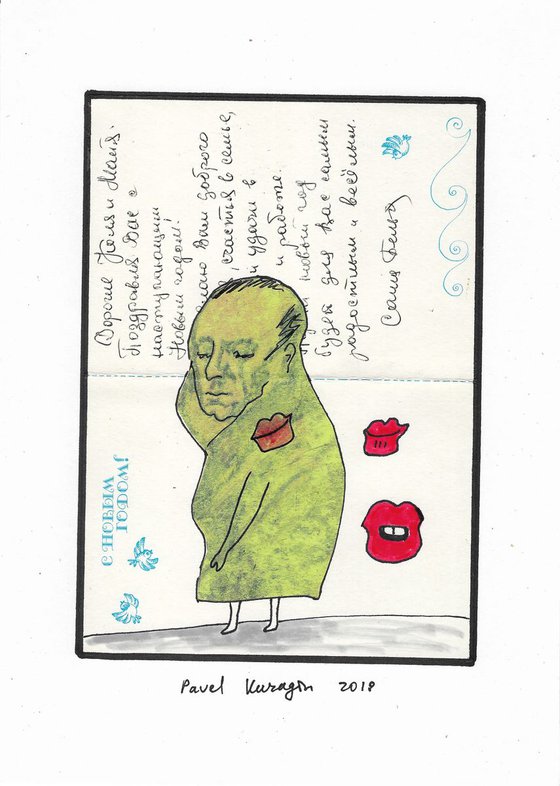 Дорогие и Майя.
Поздравляю Вас с
наступающим
Новым годом!
Вам доброго
счастья в семье,
и удачи в
и работе.
новый год
будет для Вас самым
радостным и весёлым.
Саша
С НОВЫМ
ГОДОМ!
Pavel Kuragin 2018